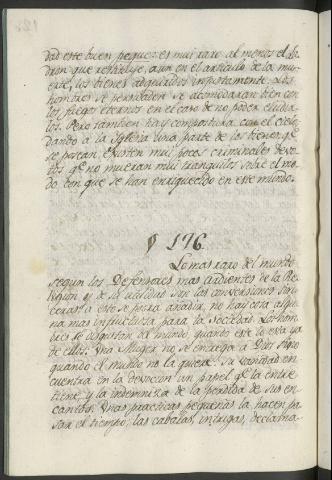 dad este buen peque: es mui raro al menos el La
dron que restituye, aun en el articulo de la mu-
erte, los bienes adquiridos injustamente. Los
hombres se persuaden se acomodaran bien con
los fuegos eternos en el caso de no poder eludir-
los. Pero tambien hay compostura con el cielo,
dando a la Iglesia una parte de los bienes qe
se poseian. Existen mui pocos criminales devo-
tos qe no mueran mui tranquilos sobre el mo-
do con que se han enriquecido en este mundo.
§ 176.
Lo mas raro del mundo
segun los Defensores mas ardientes de la Re-
ligion y de su utilidad son las conversiones sin-
ceras: a esto se podria añadir, no hay cosa algu-
na mas infructuosa para la Sociedad. Los hom-
bres se disgustan del mundo, quando este lo esta ya
de ellos: Una Muger no se entrega a Dios sino
quando el mundo no la quiere. Su vanidad en-
cuentra en la devocion un papel qe la entre-
tiene y la indemniza de la perdida de sus en-
cantos. Unas practicas pequeñas la hacen pa-
sar el tiempo; las cabalas, intrigas, declama-